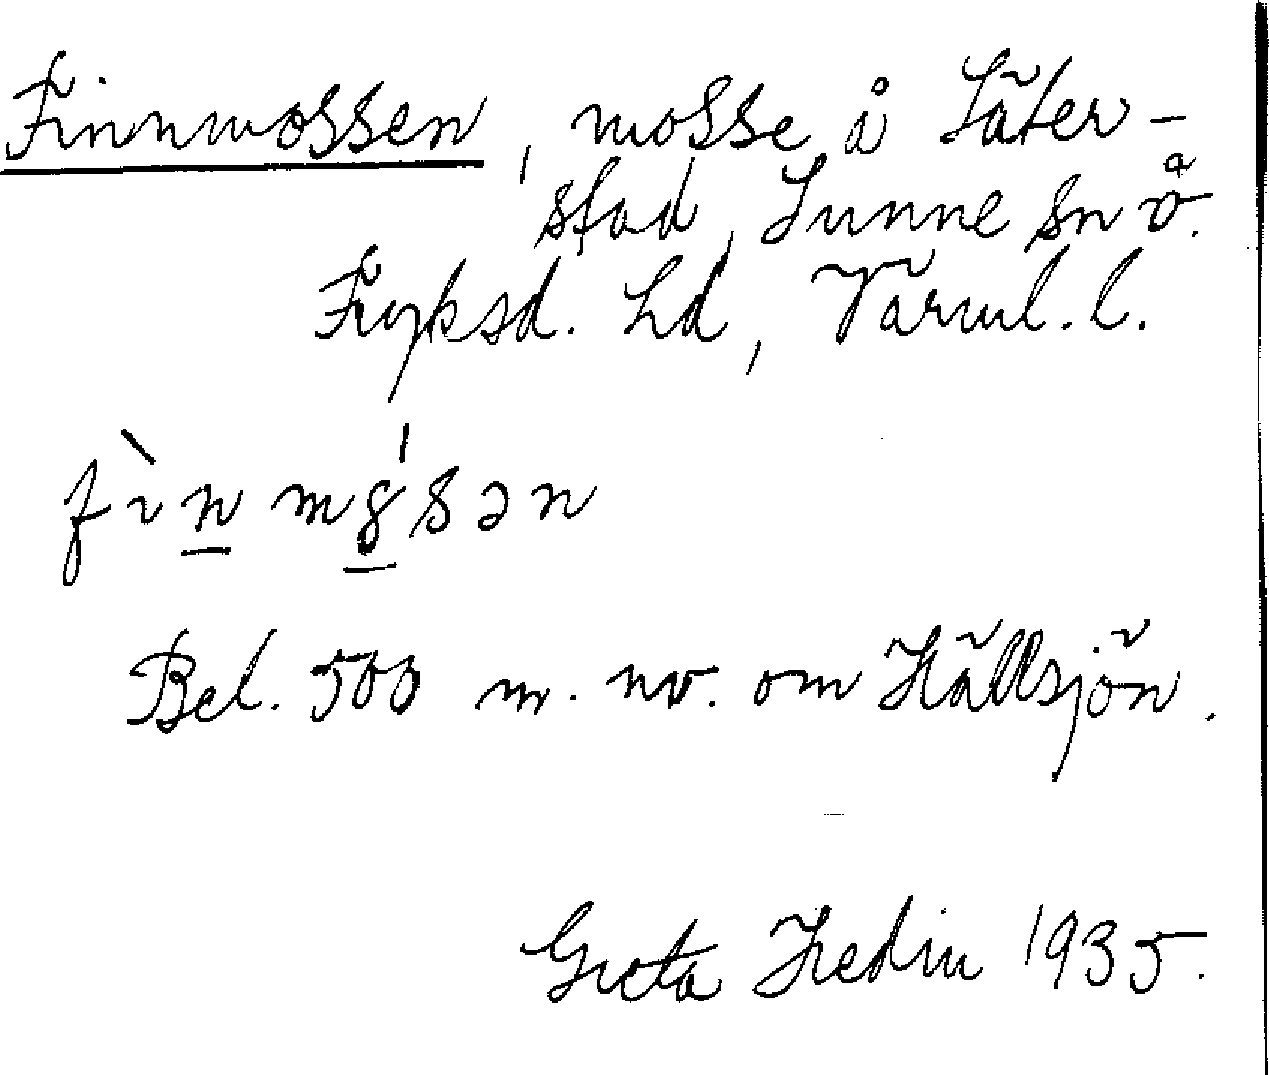 Finnmossen, mosse å Säter-
stad, Sunne sn ö.
Fryksd. hd, Värml. l.
fìn mǿsən
Bel. 500 m. nv. om Hällsjön.
Greta Hedin 1935.